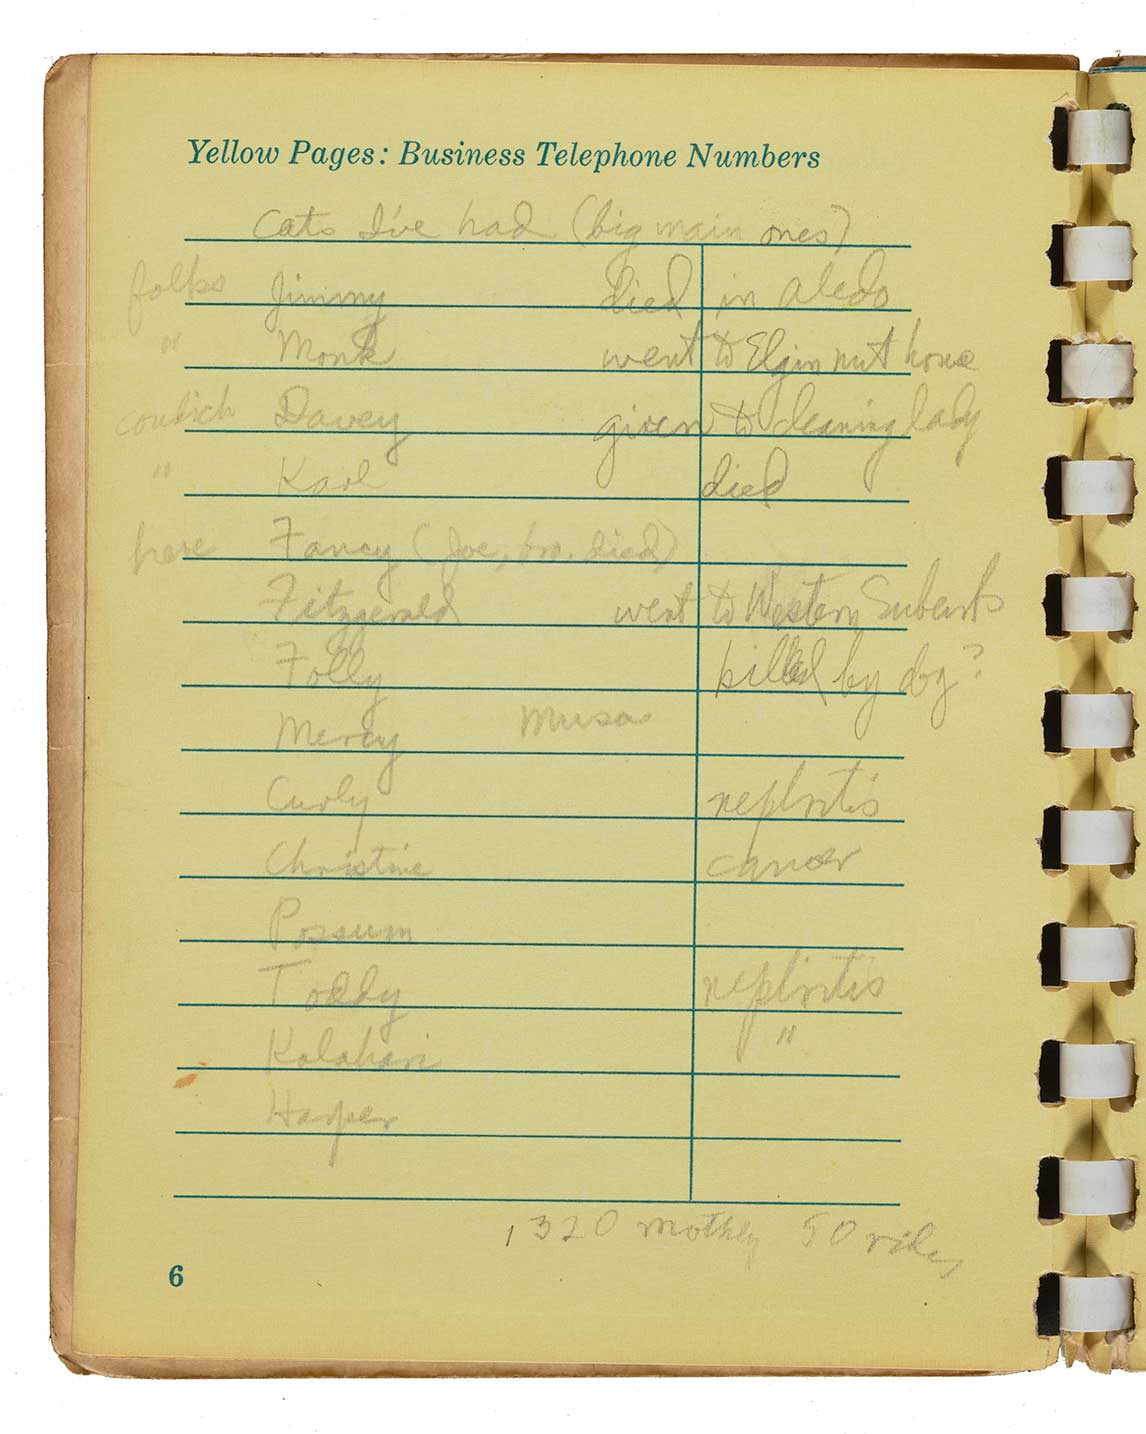 Yellow Pages: Business Telephone Numbers
Cats I've had (big main ones)
folks Jimmy died in Aledo
" Monk went to Elgin nut house
Davey given to cleaning lady
" Karl died
here Fancy (Joe, bro. died)
Fitzgerald went to Western Suburbs
Folly killed by dog?
Mercy Musa
Curly nephritis
Christine cancer
Possum
Toddy nephritis
Kalahari "
Harper
1320 monthly 50 rides
6